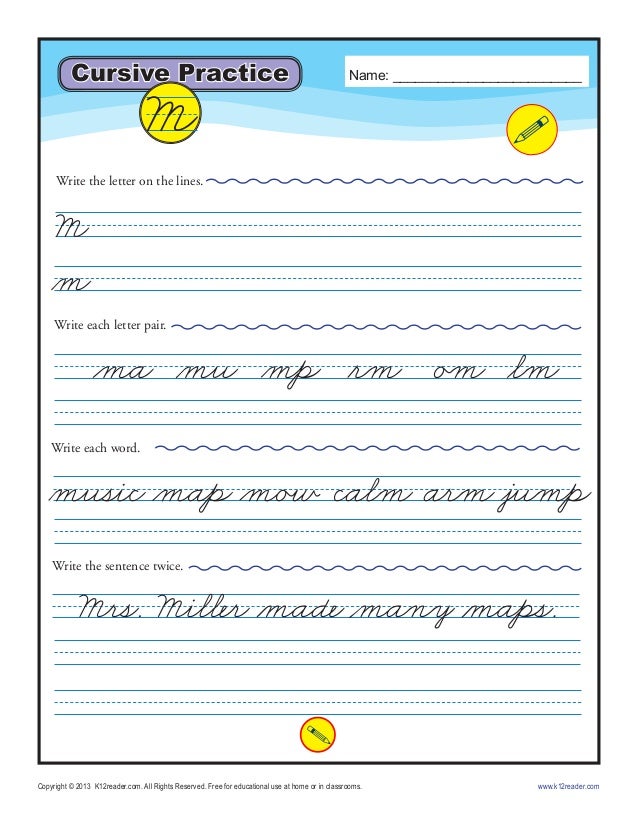 Cursive Practice
Name: ________________________
M
Write the letter on the lines.
M
m
Write each letter pair.
ma mu mp rm om lm
Write each word.
music map mow calm arm jump
Write the sentence twice.
Mrs. Miller made many maps.
Copyright © 2013 K12reader.com. All Rights Reserved. Free for educational use at home or in classrooms. www.k12reader.com